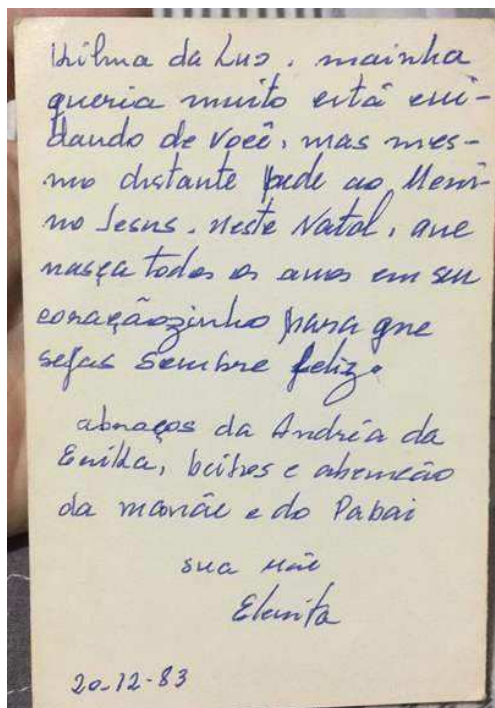 Hilma da Luz. mainha
queria muito está cui-
dando de você, mas mes-
mo distante pede ao Meni-
no Jesus. neste Natal, que
nasça todos os anos em seu
coraçãozinho para que
sejas sembre feliz.
abraços da Andréa da
Erikka, beijos e abenção
da mamãe e do Pabai
sua Mãe
Elenita
20-12-83